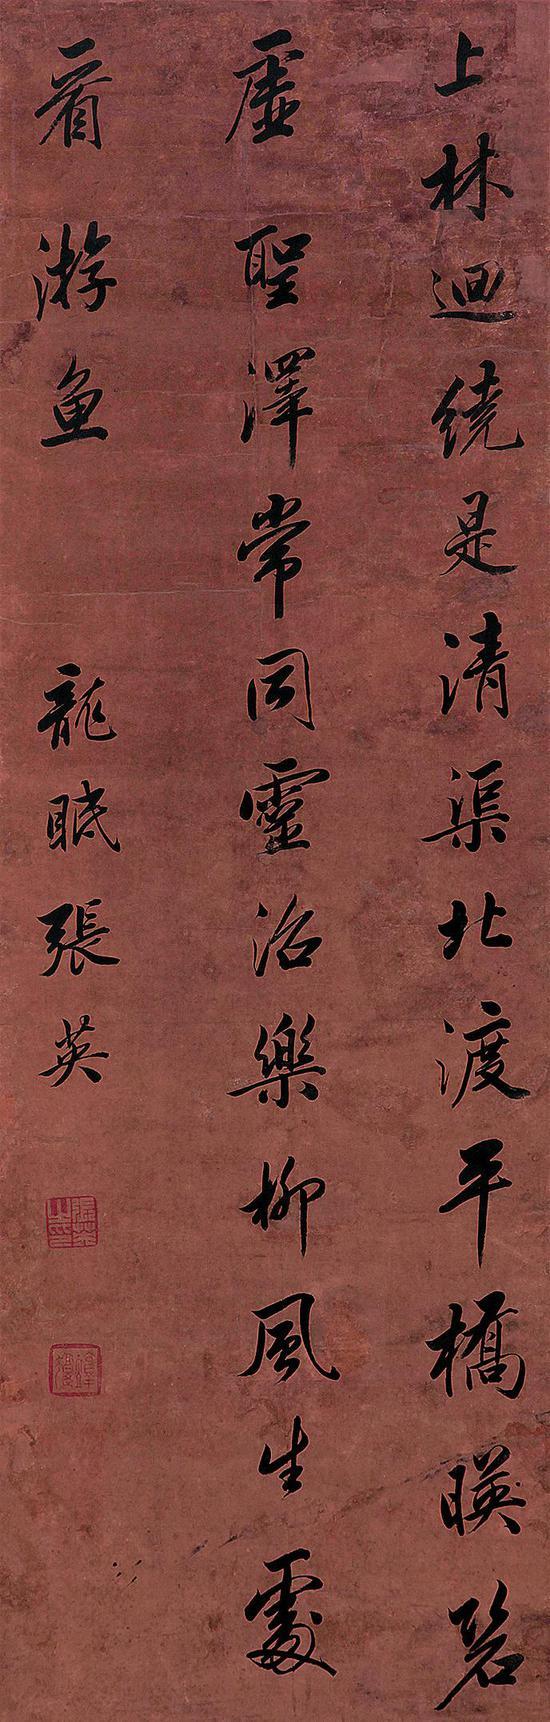 上林迴繞是清渠北渡平橋暎碧
虛聖澤常同靈沼樂柳風生處
看游魚
龍眠張英
張英之印